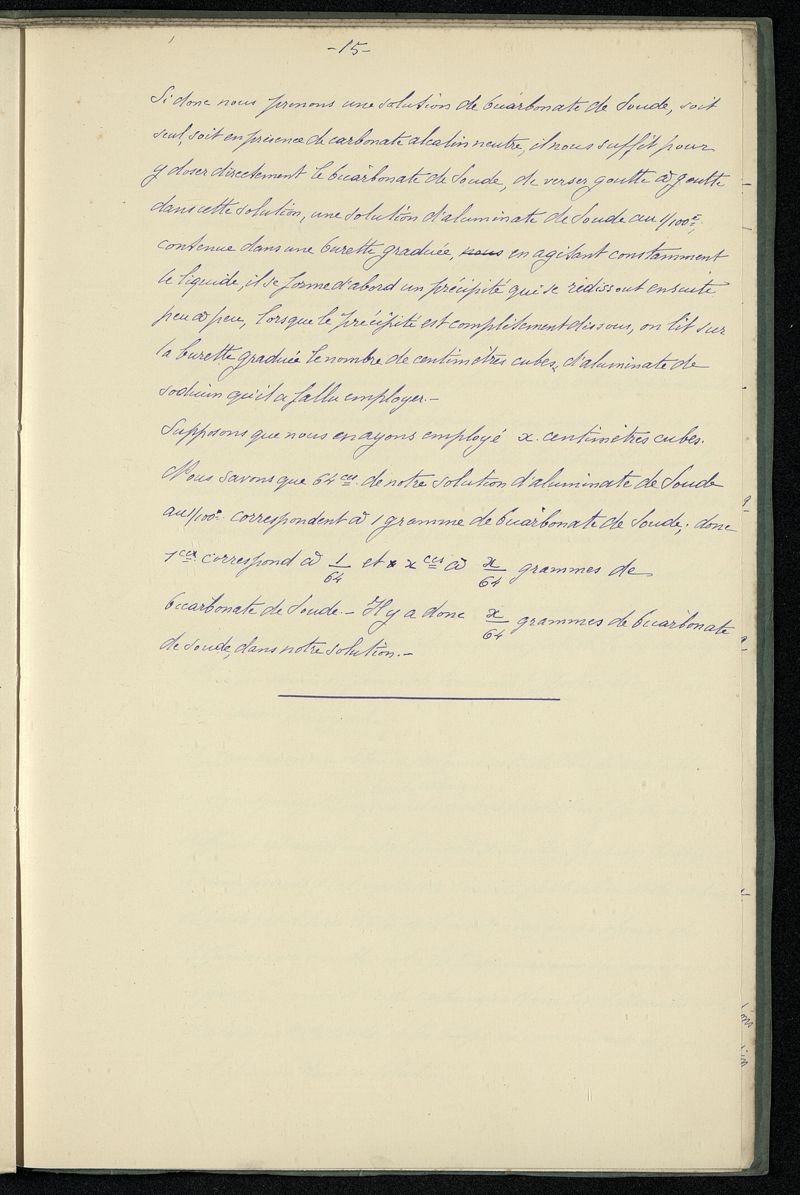 -15-
Si donc nous prenons une solution de bicarbonate de Soude, soit
seul, soit en présence de carbonate alcalin neutre, il nous suffit pour
y doser directement le bicarbonate de Soude, de verser goutte à goutte
dans cette solution, une solution d'aluminate de Soude au 1/100e,
contenue dans une burette graduée, nous en agitant constamment
le liquide, il se forme d'abord un précipité qui se redissout ensuite
peu à peu, lorsque le précipité est complètement dissous, on lit sur
la burette graduée le nombre de centimètres cubes, d'aluminate de
sodium qu'il a fallu employer.-
Supposons que nous en ayons employé x. centimètres cubes.
Nous savons que 64 ccs. de notre solution d'aluminate de Soude
au 1/100e. correspondent à 1 gramme de bicarbonate de Soude; donc
1 cc. correspond à 1/64 et x ccs à x/64 grammes de
bicarbonate de Soude.- Il y a donc x/64 grammes de bicarbonate
de soude, dans notre solution.-